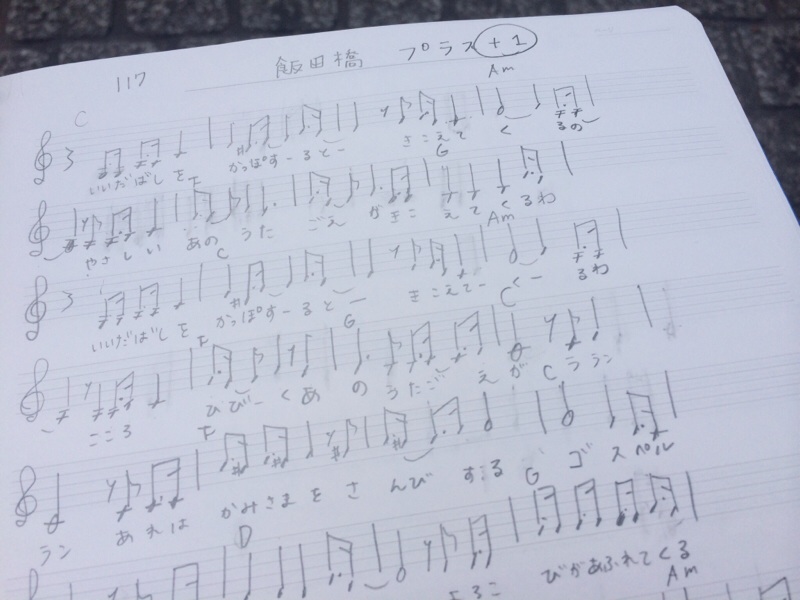 117 飯田橋 プラス +1
C Am
いいだばしを かっぽすーるとー きこえて く るの
F G
やさしい あの うた ごえ がきこ えて くるわ
C Am
いいだばしを かっぽすーるとー きこえてー くー るわ
F G C
こころ ひびーく あ の うたご え が ラ ラン
F C
ラン あれは かみさま を さ んび する ゴ スペル
D G
よろこ びがあふれてくる
Am